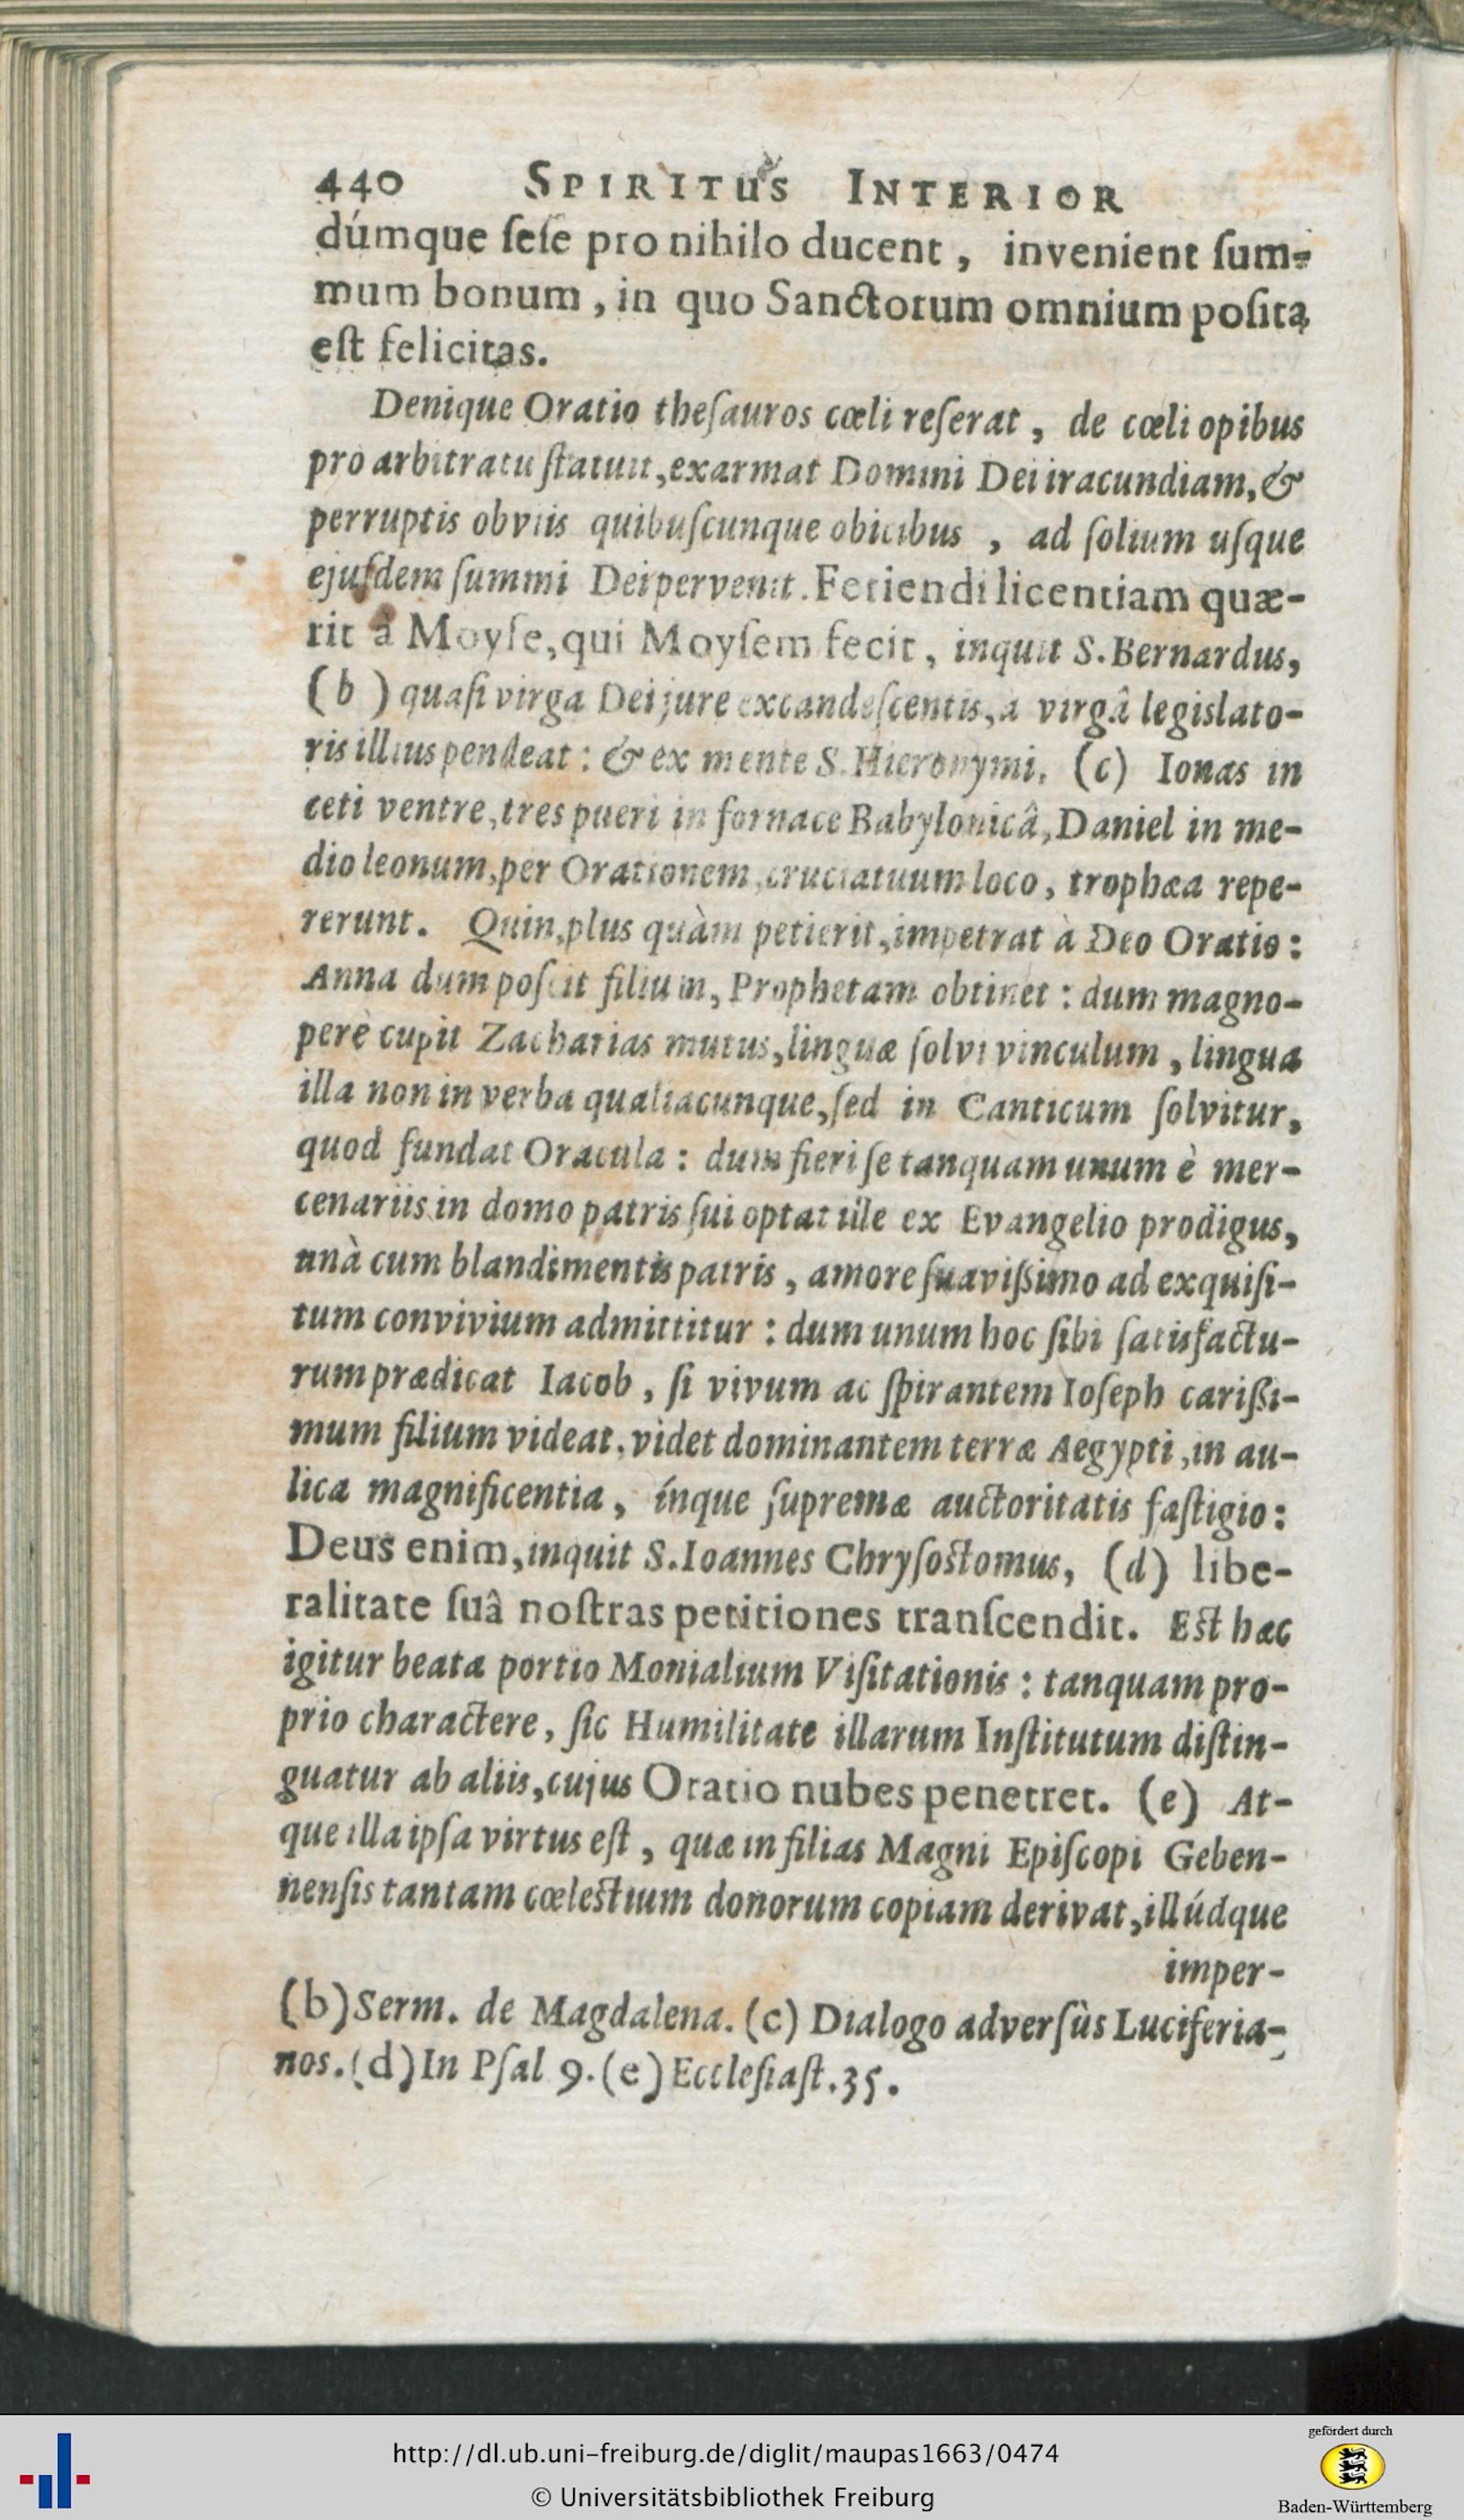 440 SPIRITUS INTERIOR
dúmque ſeſe pro nihilo ducent, invenient ſum-
mum bonum, in quo Sanctorum omnium poſita
eſt felicitas.
Denique Oratio theſauros cœli reſerat, de cœli opibus
pro arbitratu ſtatuit, exarmat Domini Dei iracundiam, &
perruptis obviis quibuſcunque obicibus, ad ſolium uſque
ejuſdem ſummi Dei pervenit. Feriendi licentiam quæ-
rit â Moyſe, qui Moyſem fecit, inquit S. Bernardus,
(b) quaſi virga Dei jure excandeſcentis, a virgâ legislato-
ris illius pendeat: & ex mente S. Hieronymi, (c) Ionas in
ceti ventre, tres pueri in fornace Babylonicâ, Daniel in me-
dio leonum, per Orationem, cruciatuum loco, trophæa repe-
rerunt. Quin, plus quàm petierit, impetrat à Deo Oratio:
Anna dum poſcit filium, Prophetam obtinet: dum magno-
perè cupit Zacharias mutus, linguæ ſolvi vinculum, lingua
illa non in verba qualiacunque, ſed in Canticum ſolvitur,
quod fundat Oracula: dum fieri ſe tanquam unum è mer-
cenariis in domo patris ſui optat ille ex Evangelio prodigus,
unà cum blandimentis patris, amore ſuavißimo ad exquiſi-
tum convivium admittitur: dum unum hoc ſibi ſatisfactu-
rum prædicat Iacob, ſi vivum ac ſpirantem Ioſeph carißi-
mum filium videat, videt dominantem terræ Aegypti, in au-
lica magnificentia, ínque ſupremæ auctoritatis faſtigio:
Deus enim, inquit S. Ioannes Chryſoſtomus, (d) libe-
ralitate ſuâ noſtras petitiones tranſcendit. Eſt hæc
igitur beata portio Monialium Viſitationis: tanquam pro-
prio charactere, ſic Humilitate illarum Inſtitutum diſtin-
guatur ab aliis, cujus Oratio nubes penetret. (e) At-
que illa ipſa virtus eſt, quæ in filias Magni Epiſcopi Geben-
nenſis tantam cœleſtium donorum copiam derivat, illúdque
imper-
(b) Serm. de Magdalena. (c) Dialogo adverſùs Luciferia-
nos. (d) In Pſal 9. (e) Eccleſiaſt. 35.
http://dl.ub.uni-freiburg.de/diglit/maupas1663/0474
© Universitätsbibliothek Freiburg
gefördert durch
Baden-Württemberg